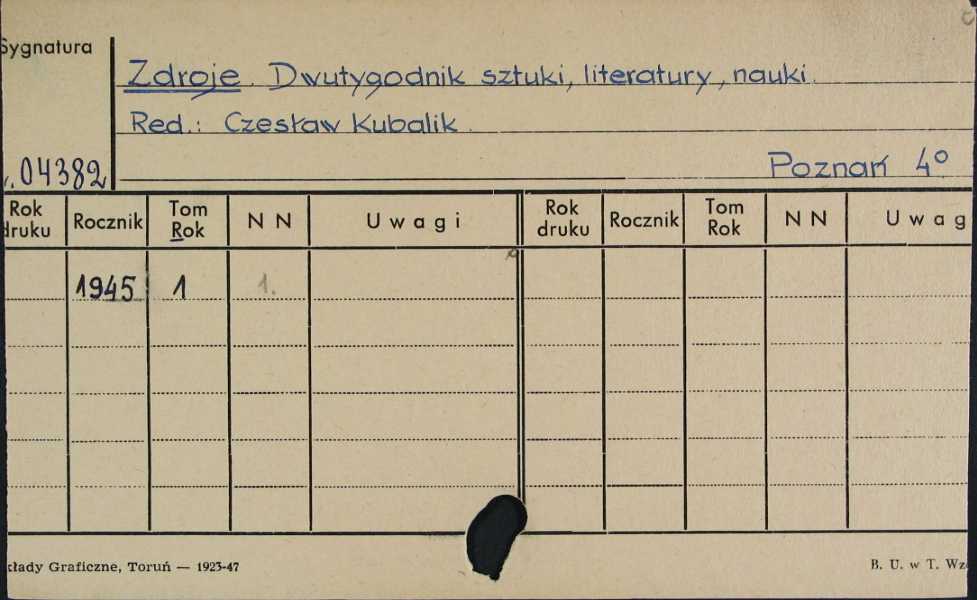 Sygnatura
Zdroje. Dwutygodnik sztuki, literatury, nauki.
Red.: Czesław Kubalik.
04382
Poznań 4°
Rok druku Rocznik Tom Rok N N Uwagi Rok druku Rocznik Tom Rok N N Uwag
1945 1 1.
kłady Graficzne, Toruń — 1923-47 B. U. w T. Wz